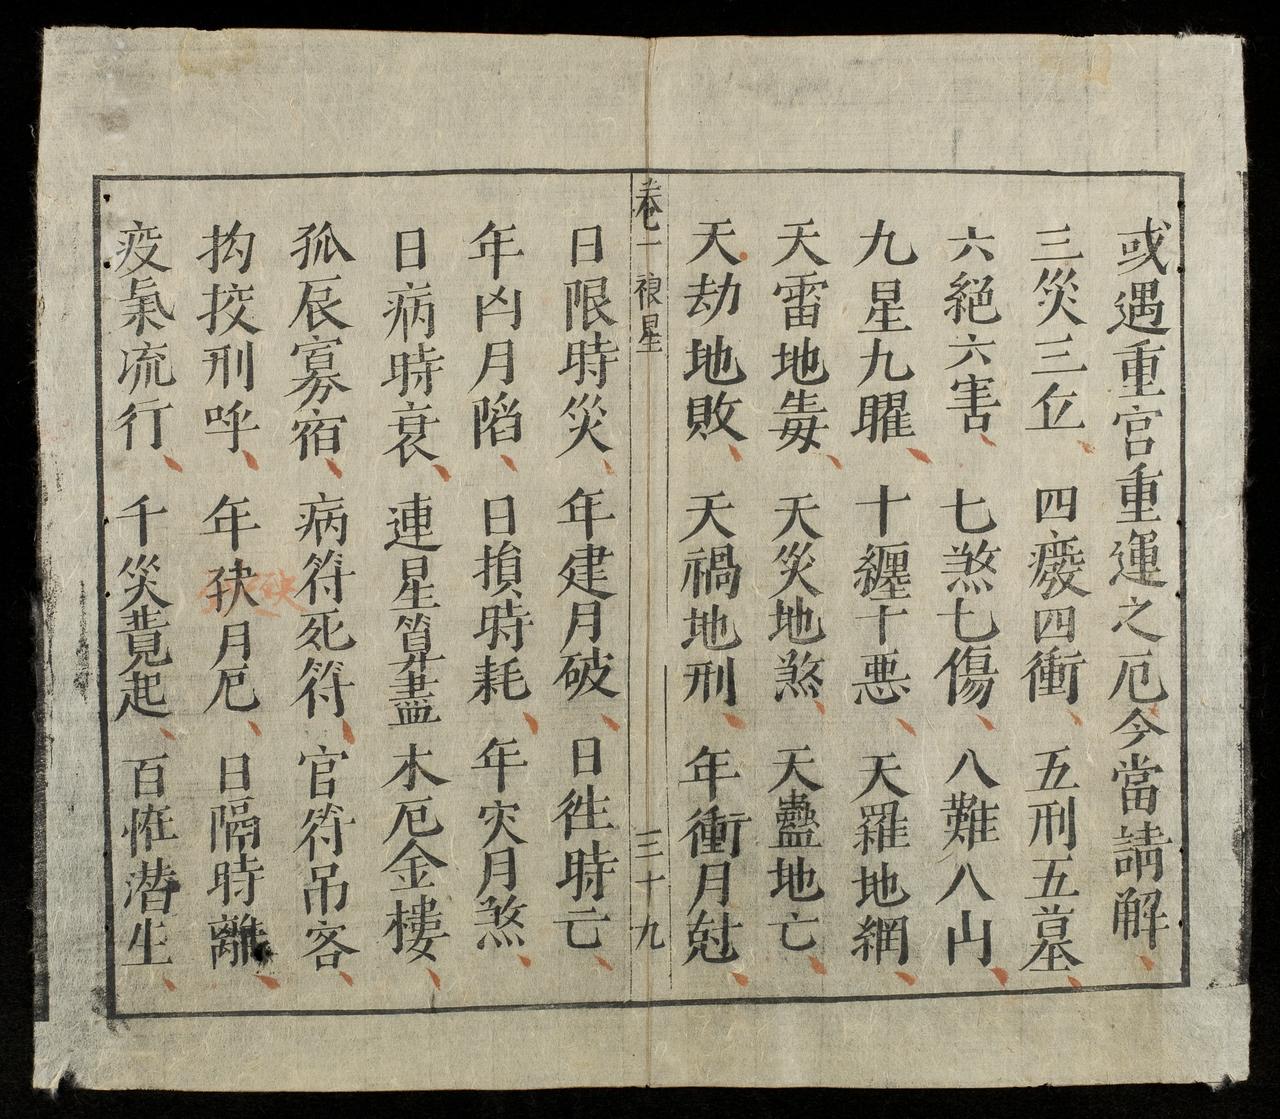 或遇重宫重運之厄今當請解
三災三丘 四癈四衝 五刑五墓
六絕六害 七煞七傷 八難八山
九星九曜 十纏十悪 天羅地網
天雷地毒 天災地煞 天蠱地亡
天劫地敗 天禍地刑 年衝月尅
卷一 禳星 三十九
日限時災 年建月破 日徃時亡
年凶月陷 日損時耗 年灾月煞
日病時衰 連星筭盡 木厄金樓
孤辰寡宿 病符死符 官符吊客
抅挍刑呼 年月厄 日隔時離
疫氣流行 千災竟起 百恠潜生